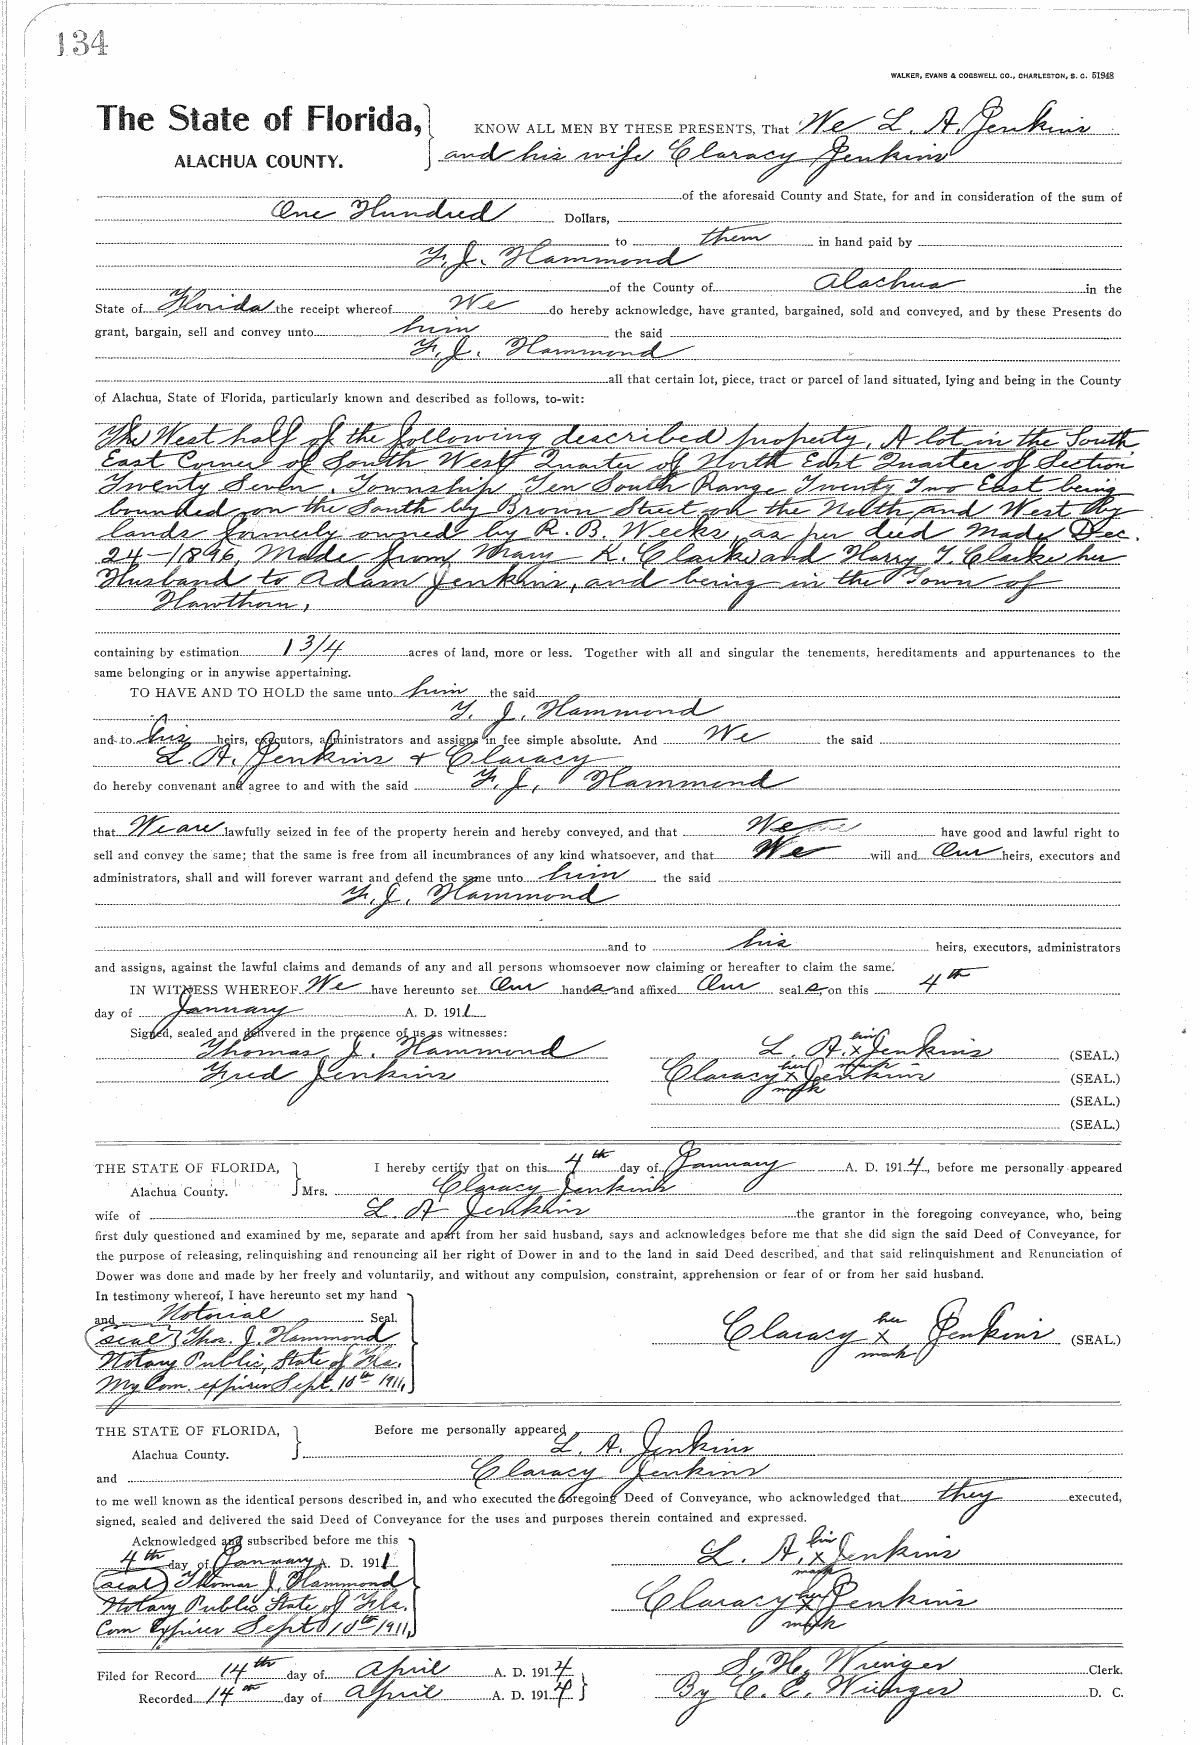 134
WALKER, EVANS & COGSWELL CO., CHARLESTON, S. C. 51948
The State of Florida, KNOW ALL MEN BY THESE PRESENTS, That We L. A. Jenkins
ALACHUA COUNTY. and his wife Claracy Jenkins
of the aforesaid County and State, for and in consideration of the sum of
One Hundred Dollars,
to them in hand paid by
F. J. Hammond
of the County of Alachua in the
State of Florida the receipt whereof We do hereby acknowledge, have granted, bargained, sold and conveyed, and by these Presents do
grant, bargain, sell and convey unto him the said
F. J. Hammond
all that certain lot, piece, tract or parcel of land situated, lying and being in the County
of Alachua, State of Florida, particularly known and described as follows, to-wit:
The West half of the following described property. A lot in the South
East Corner of South West Quarter of North East Quarter of Section
Twenty Seven, Township Ten South Range Twenty Two East being
bounded on the South by Brown Street on the North and West by
lands formerly owned by R. B. Weeks, as per deed made Dec.
24-1896, Made from Mary K. Clark and Harry T. Clarke her
Husband to Adam Jenkins, and being in the Town of
Hawthorn,
containing by estimation 1 3/4 acres of land, more or less. Together with all and singular the tenements, hereditaments and appurtenances to the
same belonging or in anywise appertaining.
TO HAVE AND TO HOLD the same unto him the said
F. J. Hammond
and to his heirs, executors, administrators and assigns in fee simple absolute. And We the said
L. A. Jenkins & Claracy
do hereby convenant and agree to and with the said F. J. Hammond
that We are lawfully seized in fee of the property herein and hereby conveyed, and that We have good and lawful right to
sell and convey the same; that the same is free from all incumbrances of any kind whatsoever, and that We will and Our heirs, executors and
administrators, shall and will forever warrant and defend the same unto him the said
F. J. Hammond
and to his heirs, executors, administrators
and assigns, against the lawful claims and demands of any and all persons whomsoever now claiming or hereafter to claim the same.
IN WITNESS WHEREOF We have hereunto set Our hands and affixed Our seals on this 4th
day of January A. D. 1911.
Signed, sealed and delivered in the presence of us as witnesses:
Thomas J. Hammond L. A. his x mark Jenkins (SEAL.)
Fred Jenkins Claracy her x mark Jenkins (SEAL.)
(SEAL.)
(SEAL.)
THE STATE OF FLORIDA, I hereby certify that on this 4th day of January A. D. 1914, before me personally appeared
Alachua County. Mrs. Claracy Jenkins
wife of L. A Jenkins the grantor in the foregoing conveyance, who, being
first duly questioned and examined by me, separate and apart from her said husband, says and acknowledges before me that she did sign the said Deed of Conveyance, for
the purpose of releasing, relinquishing and renouncing all her right of Dower in and to the land in said Deed described, and that said relinquishment and Renunciation of
Dower was done and made by her freely and voluntarily, and without any compulsion, constraint, apprehension or fear of or from her said husband.
In testimony whereof, I have hereunto set my hand
and Notorial Seal.
(seal) Thos. J. Hammond Claracy her x mark Jenkins (SEAL.)
Notary Public, State of Fla.
My Com. expires Sept. 10th 1911,
THE STATE OF FLORIDA, Before me personally appeared
Alachua County. L. A. Jenkins
and Claracy Jenkins
to me well known as the identical persons described in, and who executed the foregoing Deed of Conveyance, who acknowledged that they executed,
signed, sealed and delivered the said Deed of Conveyance for the uses and purposes therein contained and expressed.
Acknowledged and subscribed before me this
4th day of January A. D. 1911 L. A. his x mark Jenkins
(seal) Thomas J. Hammond
Notary Public State of Fla. Claracy her x mark Jenkins
Com Expires Sept 10th 1911,
Filed for Record 14th day of April A. D. 1914 S. H. Wienges Clerk.
Recorded 14th day of April A. D. 1914 By C. E. Wienges D. C.